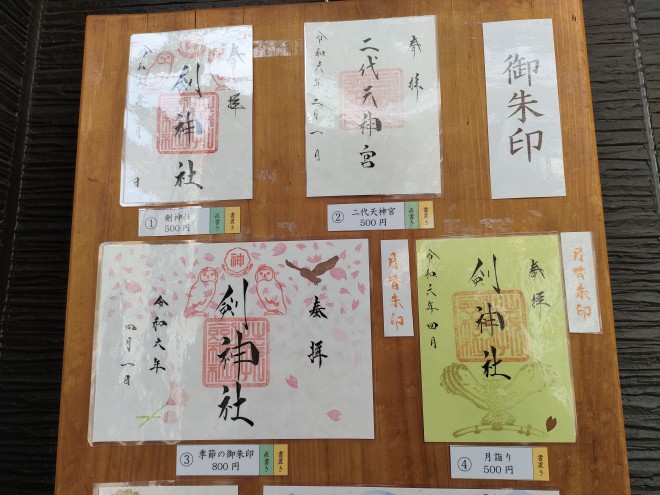 御朱印
奉拝
剣神社
令和六年
月
日
① 剣神社
500円
直書き
書置き
奉拝
二代天神宮
令和六年二月一日
② 二代天神宮
500円
直書き
書置き
神
奉拝
剣神社
令和六年
四月一日
③ 季節の御朱印
800円
直書き
書置き
月替朱印
奉拝
剣神社
令和六年四月
④ 月詣り
500円
書置き
月替朱印